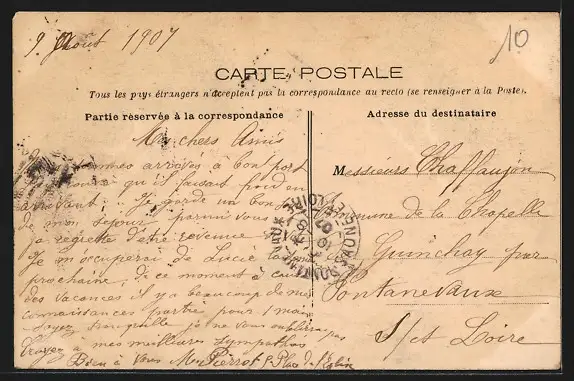 9. Août 1907
10
CARTE POSTALE
Tous les pays étrangers n'acceptent pas la correspondance au recto (se renseigner à la Poste).
Partie réservée à la correspondance
Adresse du destinataire
Mes chers Amis
sommes arrivés à bon port
qu'il faisait
arrivant. Je garde un bon
de mon séjour parmi vous
je regrette d'être revenue
Je m'occuperai de Lucie
prochaine, de ce moment à cause
des vacances il y a beaucoup de mes
connaissances partie pour 1 mois
Soyez tranquille je ne vous oublierai pas
Croyez à mes meilleures sympathies
Bien à Vous Pierrot 5 Place de l'Eglise
Messieurs Chaffaujon
Commune de la Chapelle
Guinchay par
Pontanevaux
S/et Loire
PONTANEVAUX
SAONE-ET-LOIRE